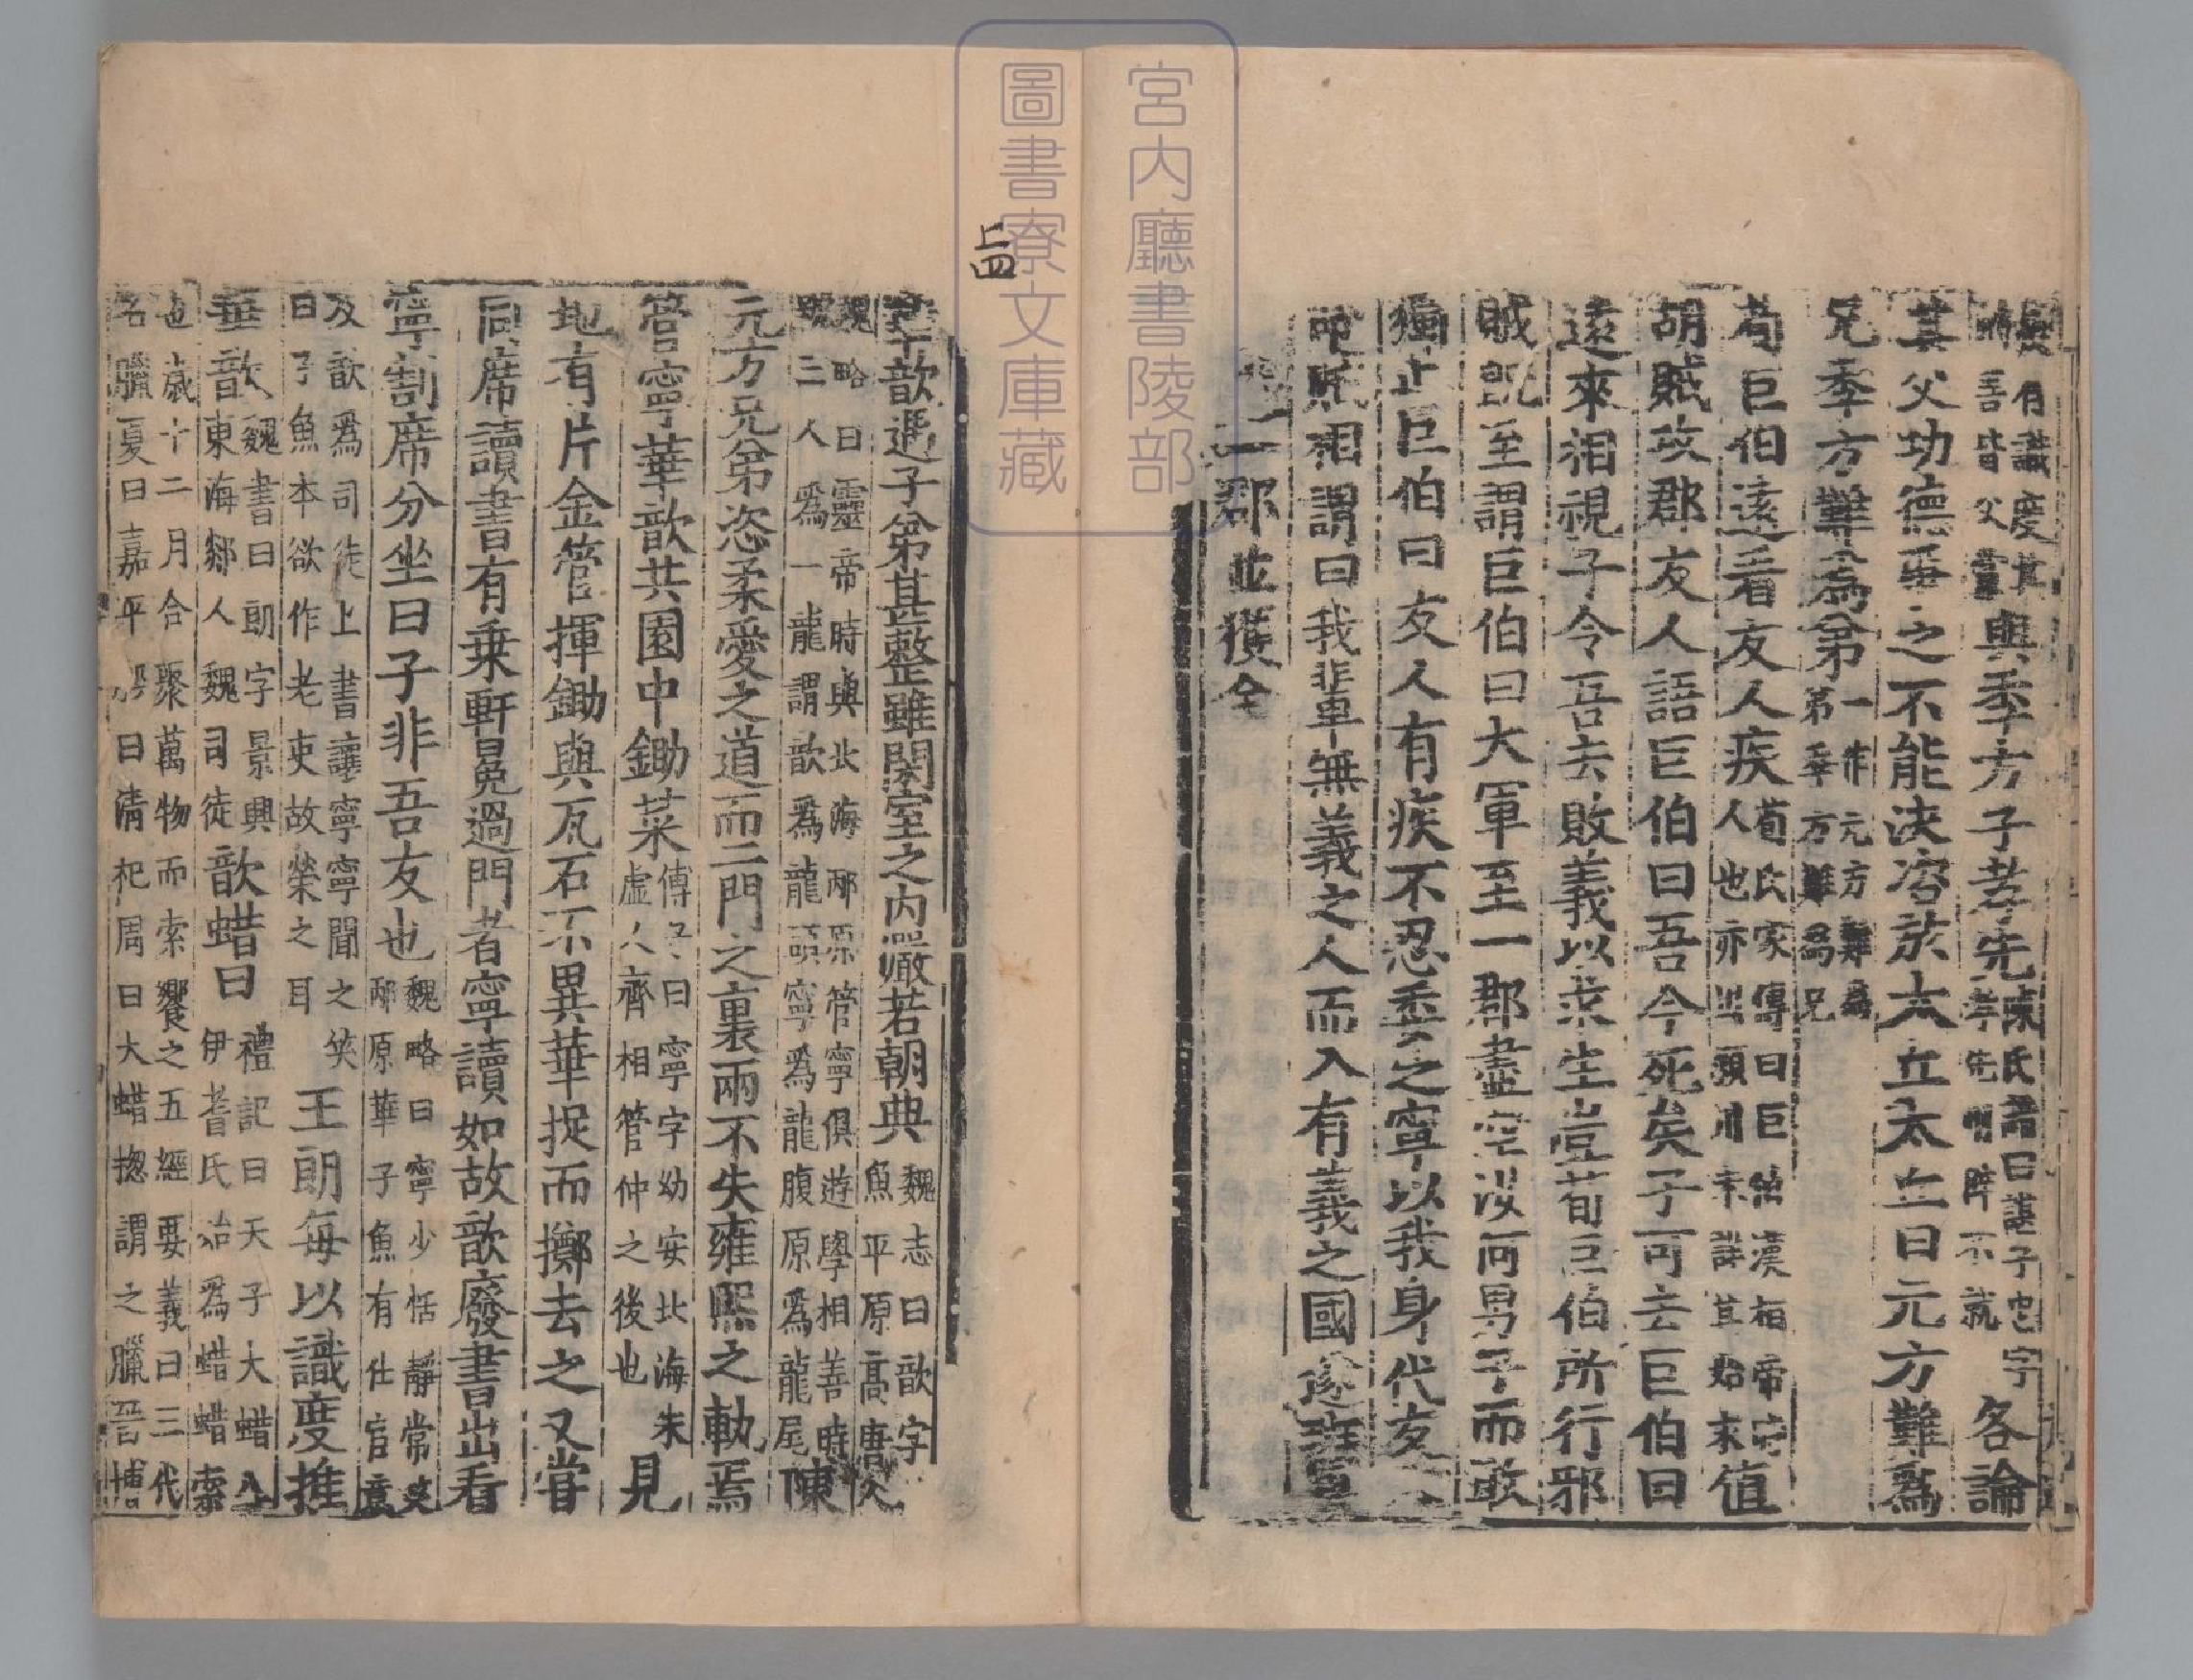 長有識度其
與季方子孝先陳氏譜曰諶子忠字孝先州辟不就各論
其父功德爭之不能決咨於太丘太丘曰元方難為
兄季方難為弟一作元方難為弟季方難為兄
荀巨伯遠看友人疾荀氏家傳曰巨伯漢桓帝時人也亦出潁川未詳其始末值
胡賊攻郡友人語巨伯曰吾今死矣子可去巨伯曰
遠來相視子令吾去敗義以求生豈荀巨伯所行邪
賊既至謂巨伯曰大軍至一郡盡空汝何男子而敢
獨止巨伯曰友人有疾不忍委之寧以我身代友
賊相謂曰我輩無義之人而入有義之國遂班軍
一郡並獲全
上四
華歆遇子弟甚整雖閑室之內嚴若朝典魏志曰歆字子魚平原高唐人
魏略曰靈帝時與北海邴原管寧俱遊學相善時號三人為一龍謂歆為龍頭寧為龍腹原為龍尾陳
元方兄弟恣柔愛之道而二門之裏兩不失雍熙之軌焉
管寧華歆共園中鋤菜傅子曰寧字幼安北海朱虛人齊相管仲之後也見
地有片金管揮鋤與瓦石不異華捉而擲去之又嘗
同席讀書有乗軒冕過門者寧讀如故歆廢書出看
寧割席分坐曰子非吾友也魏略曰寧少恬靜常笑邴原華子魚有仕宦意
及歆為司徒上書讓寧寧聞之笑曰子魚本欲作老吏故榮之耳王朗每以識度推
華歆魏書曰朗字景興東海郯人魏司徒歆蜡曰禮記曰天子大蜡八伊耆氏始為蜡蜡索
也歲十二月合聚萬物而索饗之五經要義曰三代名臘夏曰嘉平殷曰清祀周曰大蜡揔謂之臘晉博
宮内廳書陵部
圖書寮文庫藏